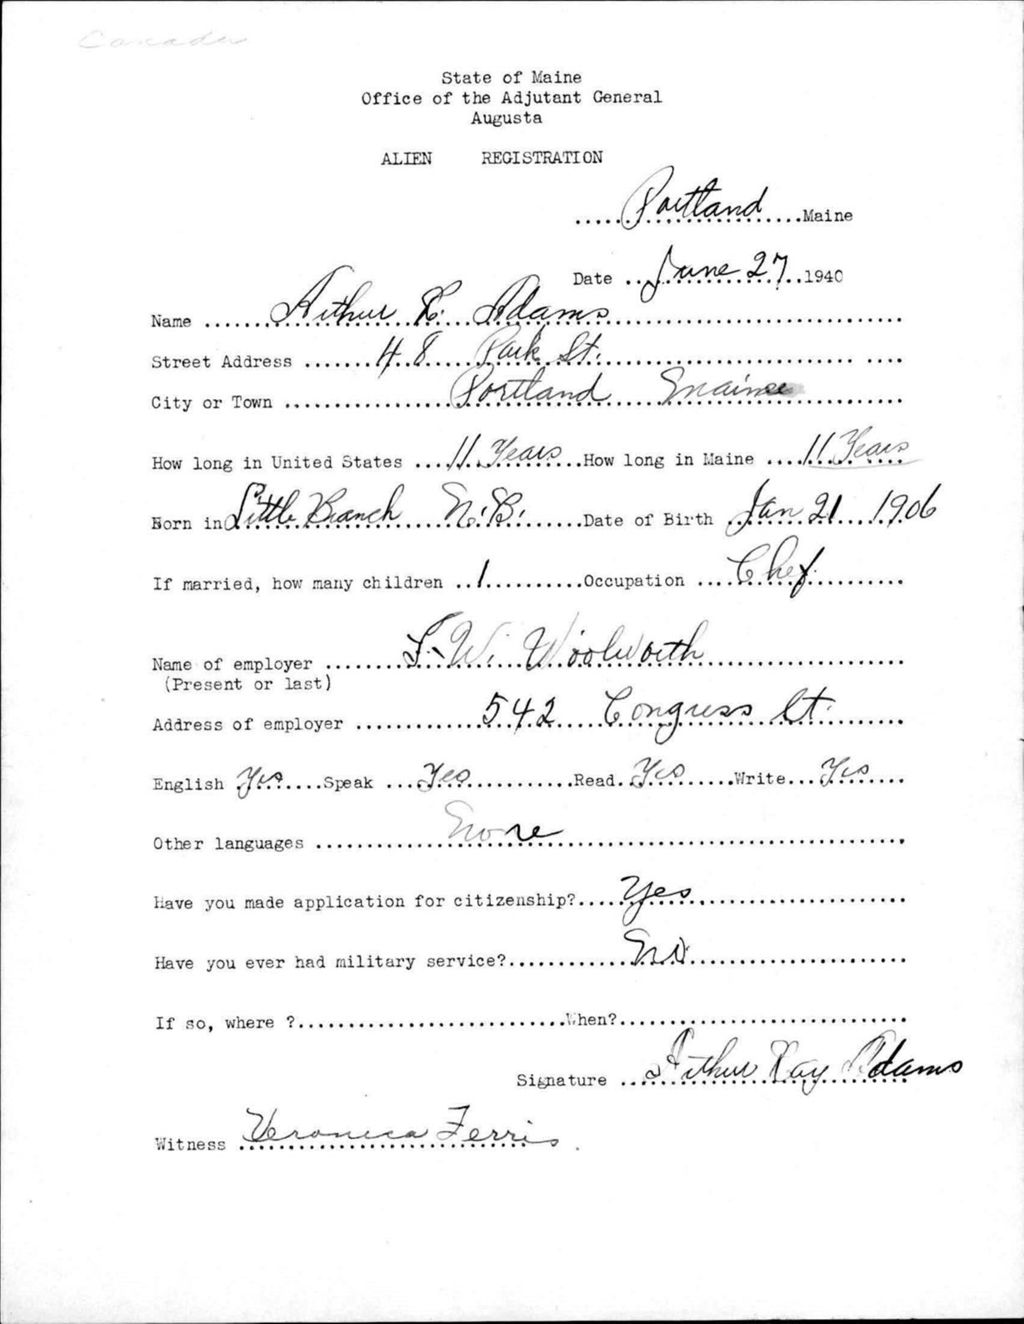 Canada
State of Maine
Office of the Adjutant General
Augusta
ALIEN REGISTRATION
.....Portland.....Maine
Date ..June 27..1940
Name ......Arthur R. Adams......
Street Address .......48 Park St.......
City or Town .......Portland Maine.......
How long in United States ...11 Years...How long in Maine ....11 Years
Born in Little Branch N.B.......Date of Birth Jan 21 1906
If married, how many children ..1..........Occupation ....Chef.........
Name of employer .......F. W. Woolworth.......
(Present or last)
Address of employer ............542 Congress St.......
English Yes....Speak ...Yes..........Read.Yes......Write...Yes....
Other languages ............None............
Have you made application for citizenship?.....Yes............
Have you ever had military service?............No............
If so, where ?..........................When?............................
Signature ...Arthur Ray Adams
Witness Veronica Ferris